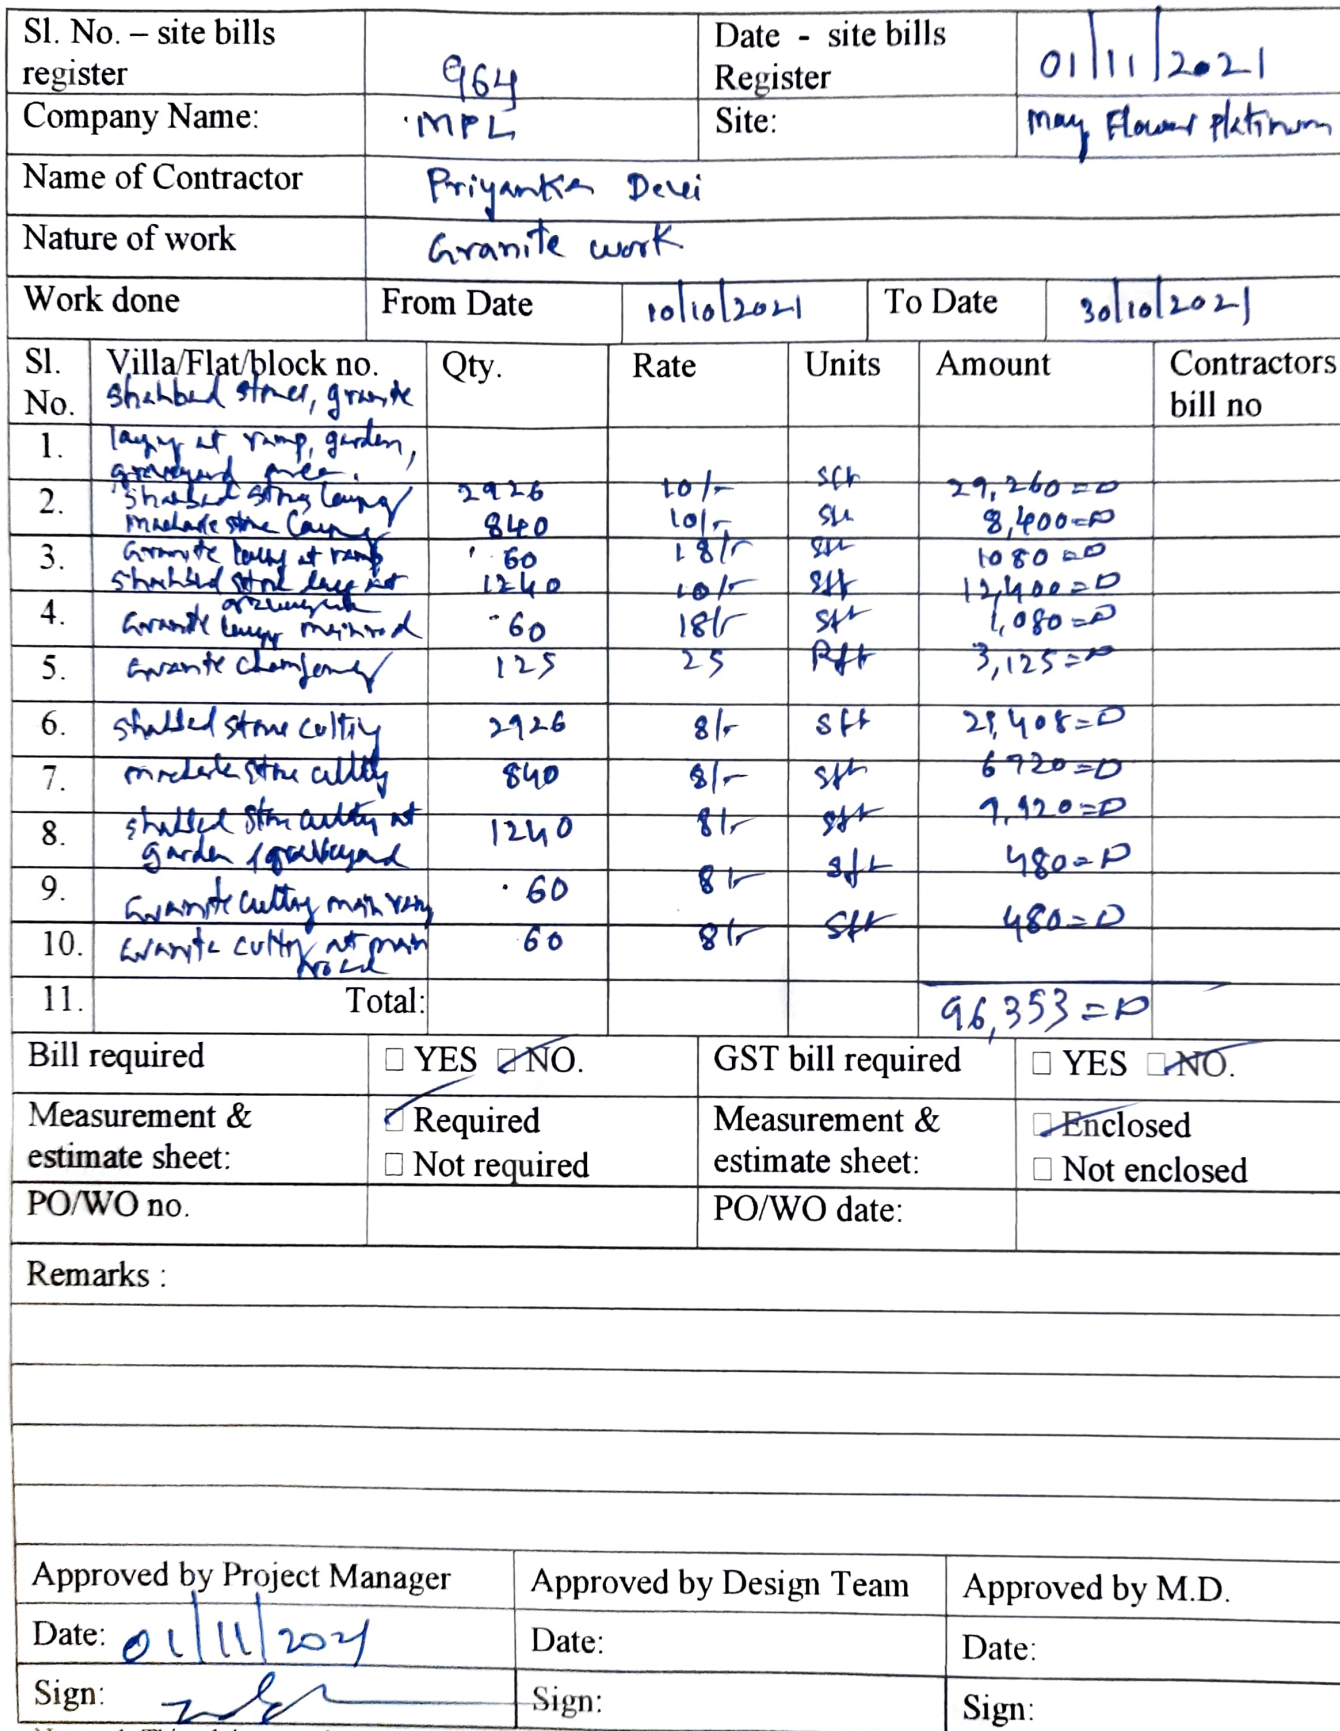 Sl. No. – site bills register 964 Date - site bills Register 01/11/2021
Company Name: MPL Site: May Flower Platinum
Name of Contractor Priyanka Devi
Nature of work Granite work
Work done From Date 10/10/2021 To Date 30/10/2021
Sl. No. Villa/Flat/block no. Qty. Rate Units Amount Contractors bill no
Shahbad stones, granite
1. laying at ramp, garden,
graveyard area.
2. Shabad stones laying 2926 10/- sft 29,260=0
stone laying 840 10/- sft 8,400=0
3. Granite laying at ramp 60 18/- sft 1080=0
Shahbad stone 1240 10/- sft 12,400=0
4. Granite laying mainroad 60 18/- sft 1,080=0
5. Granite 125 25 Rft 3,125=0
6. shabbad stone cutting 2926 8/- sft 23,408=0
7. stone cutting 840 8/- sft 6720=0
8. shabbad stone cutting at 1240 8/- sft 9,920=0
garden / graveyard
9. Granite cutting main ramp 60 8/- sft 480=0
10. Granite cutting at main 60 8/- sft 480=0
road
11. Total: 96,353=0
Bill required □ YES □ NO. GST bill required □ YES □ NO.
Measurement & estimate sheet: □ Required Measurement & estimate sheet: □ Enclosed
□ Not required □ Not enclosed
PO/WO no. PO/WO date:
Remarks :
Approved by Project Manager Approved by Design Team Approved by M.D.
Date: 01/11/2021 Date: Date:
Sign: Sign: Sign: